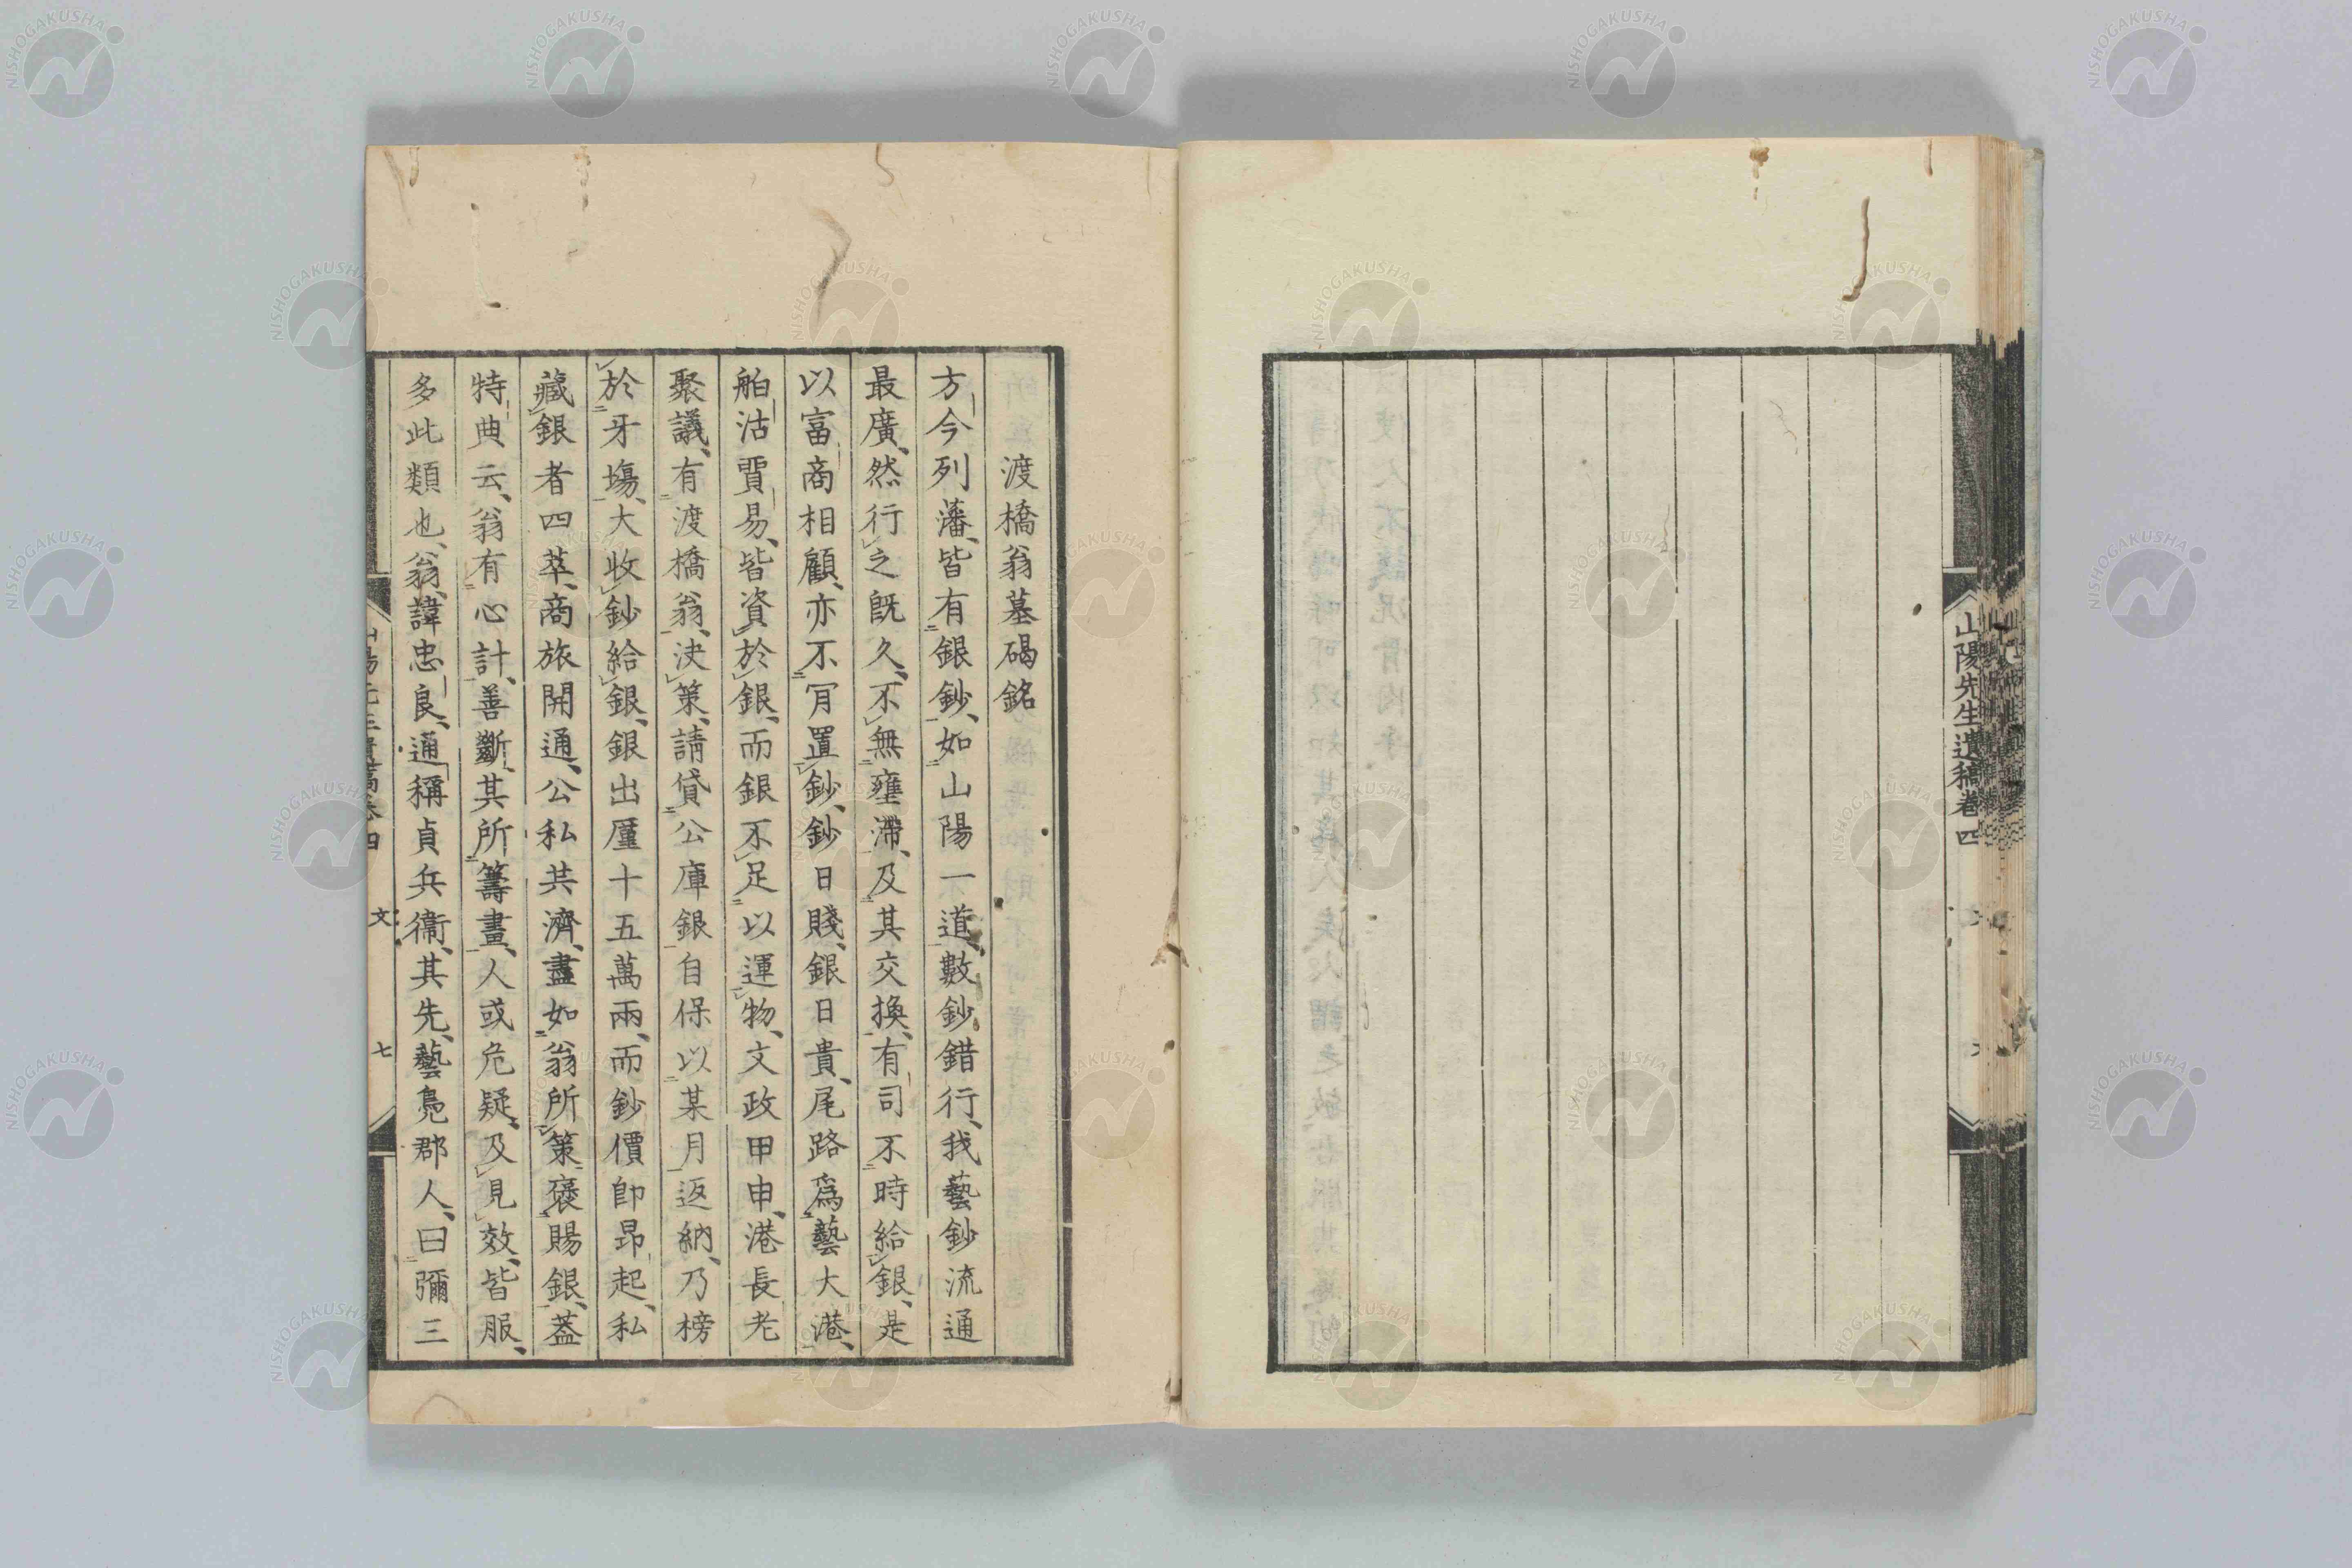 山陽先生遺稿卷四
渡橋翁墓碣銘
方今列藩、皆有銀鈔、如山陽一道、數鈔錯行、我藝鈔流通
最廣、然行之既久、不無壅滯、及其交換、有司不時給銀、是
以富商相顧、亦不肎置鈔、鈔日賤、銀日貴、尾路爲藝大港、
舶沽賈易、皆資於銀、而銀不足以運物、文政甲申、港長老
聚議、有渡橋翁、決策、請貸公庫銀自保以某月返納、乃榜
於牙塲、大收鈔給銀、銀出厪十五萬兩、而鈔價卽昂起、私
藏銀者四萃、商旅開通、公私共濟、盡如翁所策褒賜銀、蓋
特典云、翁有心計、善斷、其所籌畫、人或危疑、及見效、皆服、
多此類也、翁、諱忠良、通稱貞兵衞、其先、藝島郡人、曰彌三
文
七
NISHOGAKUSHA